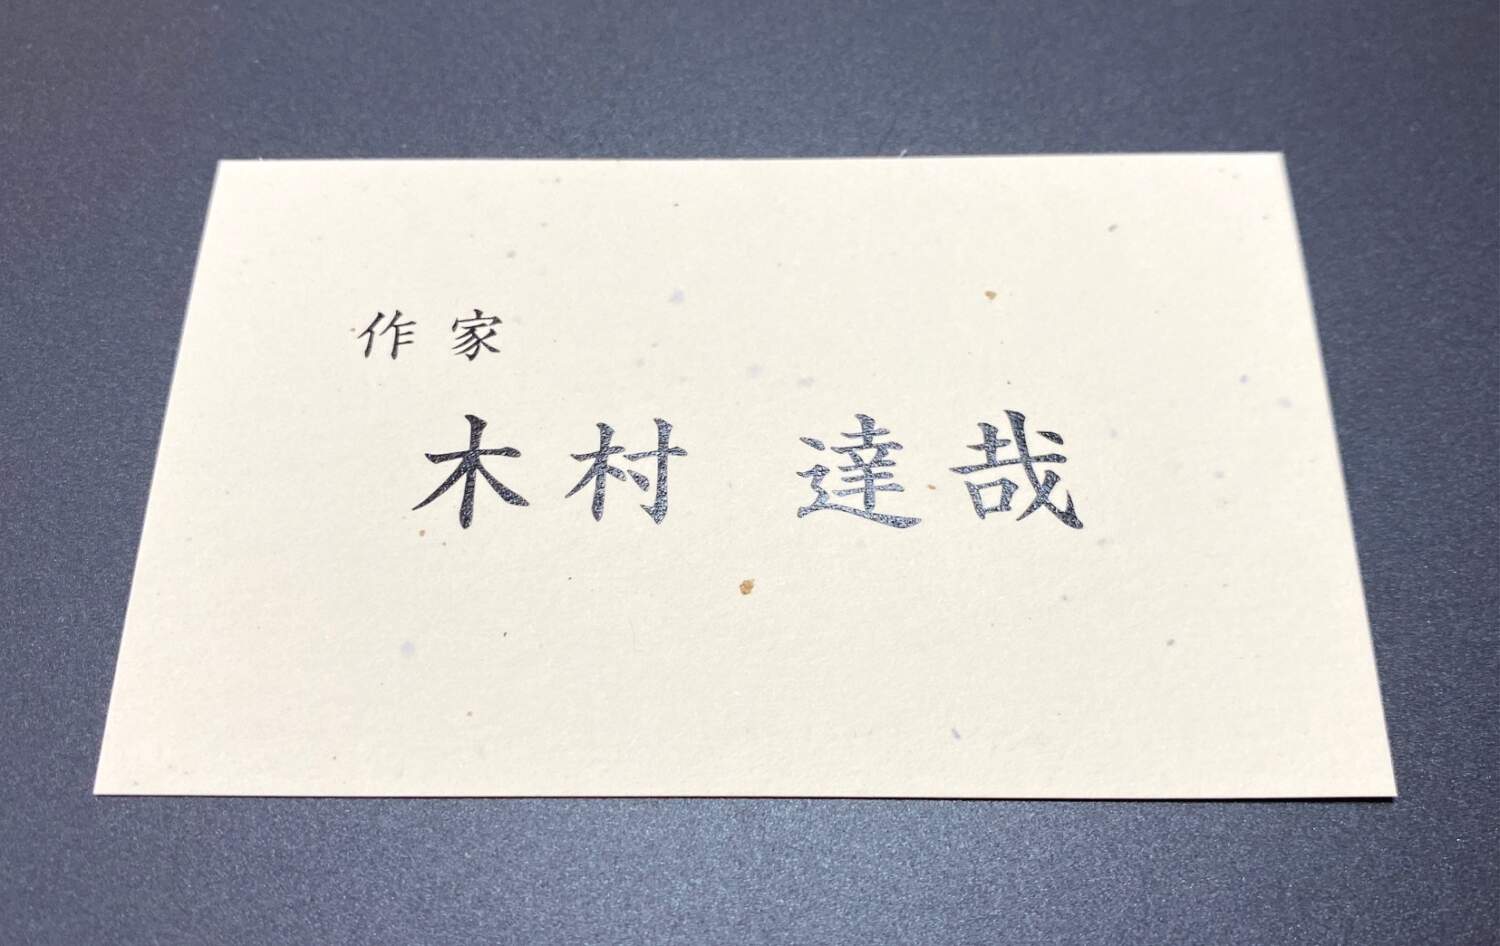 作家
木村 達哉